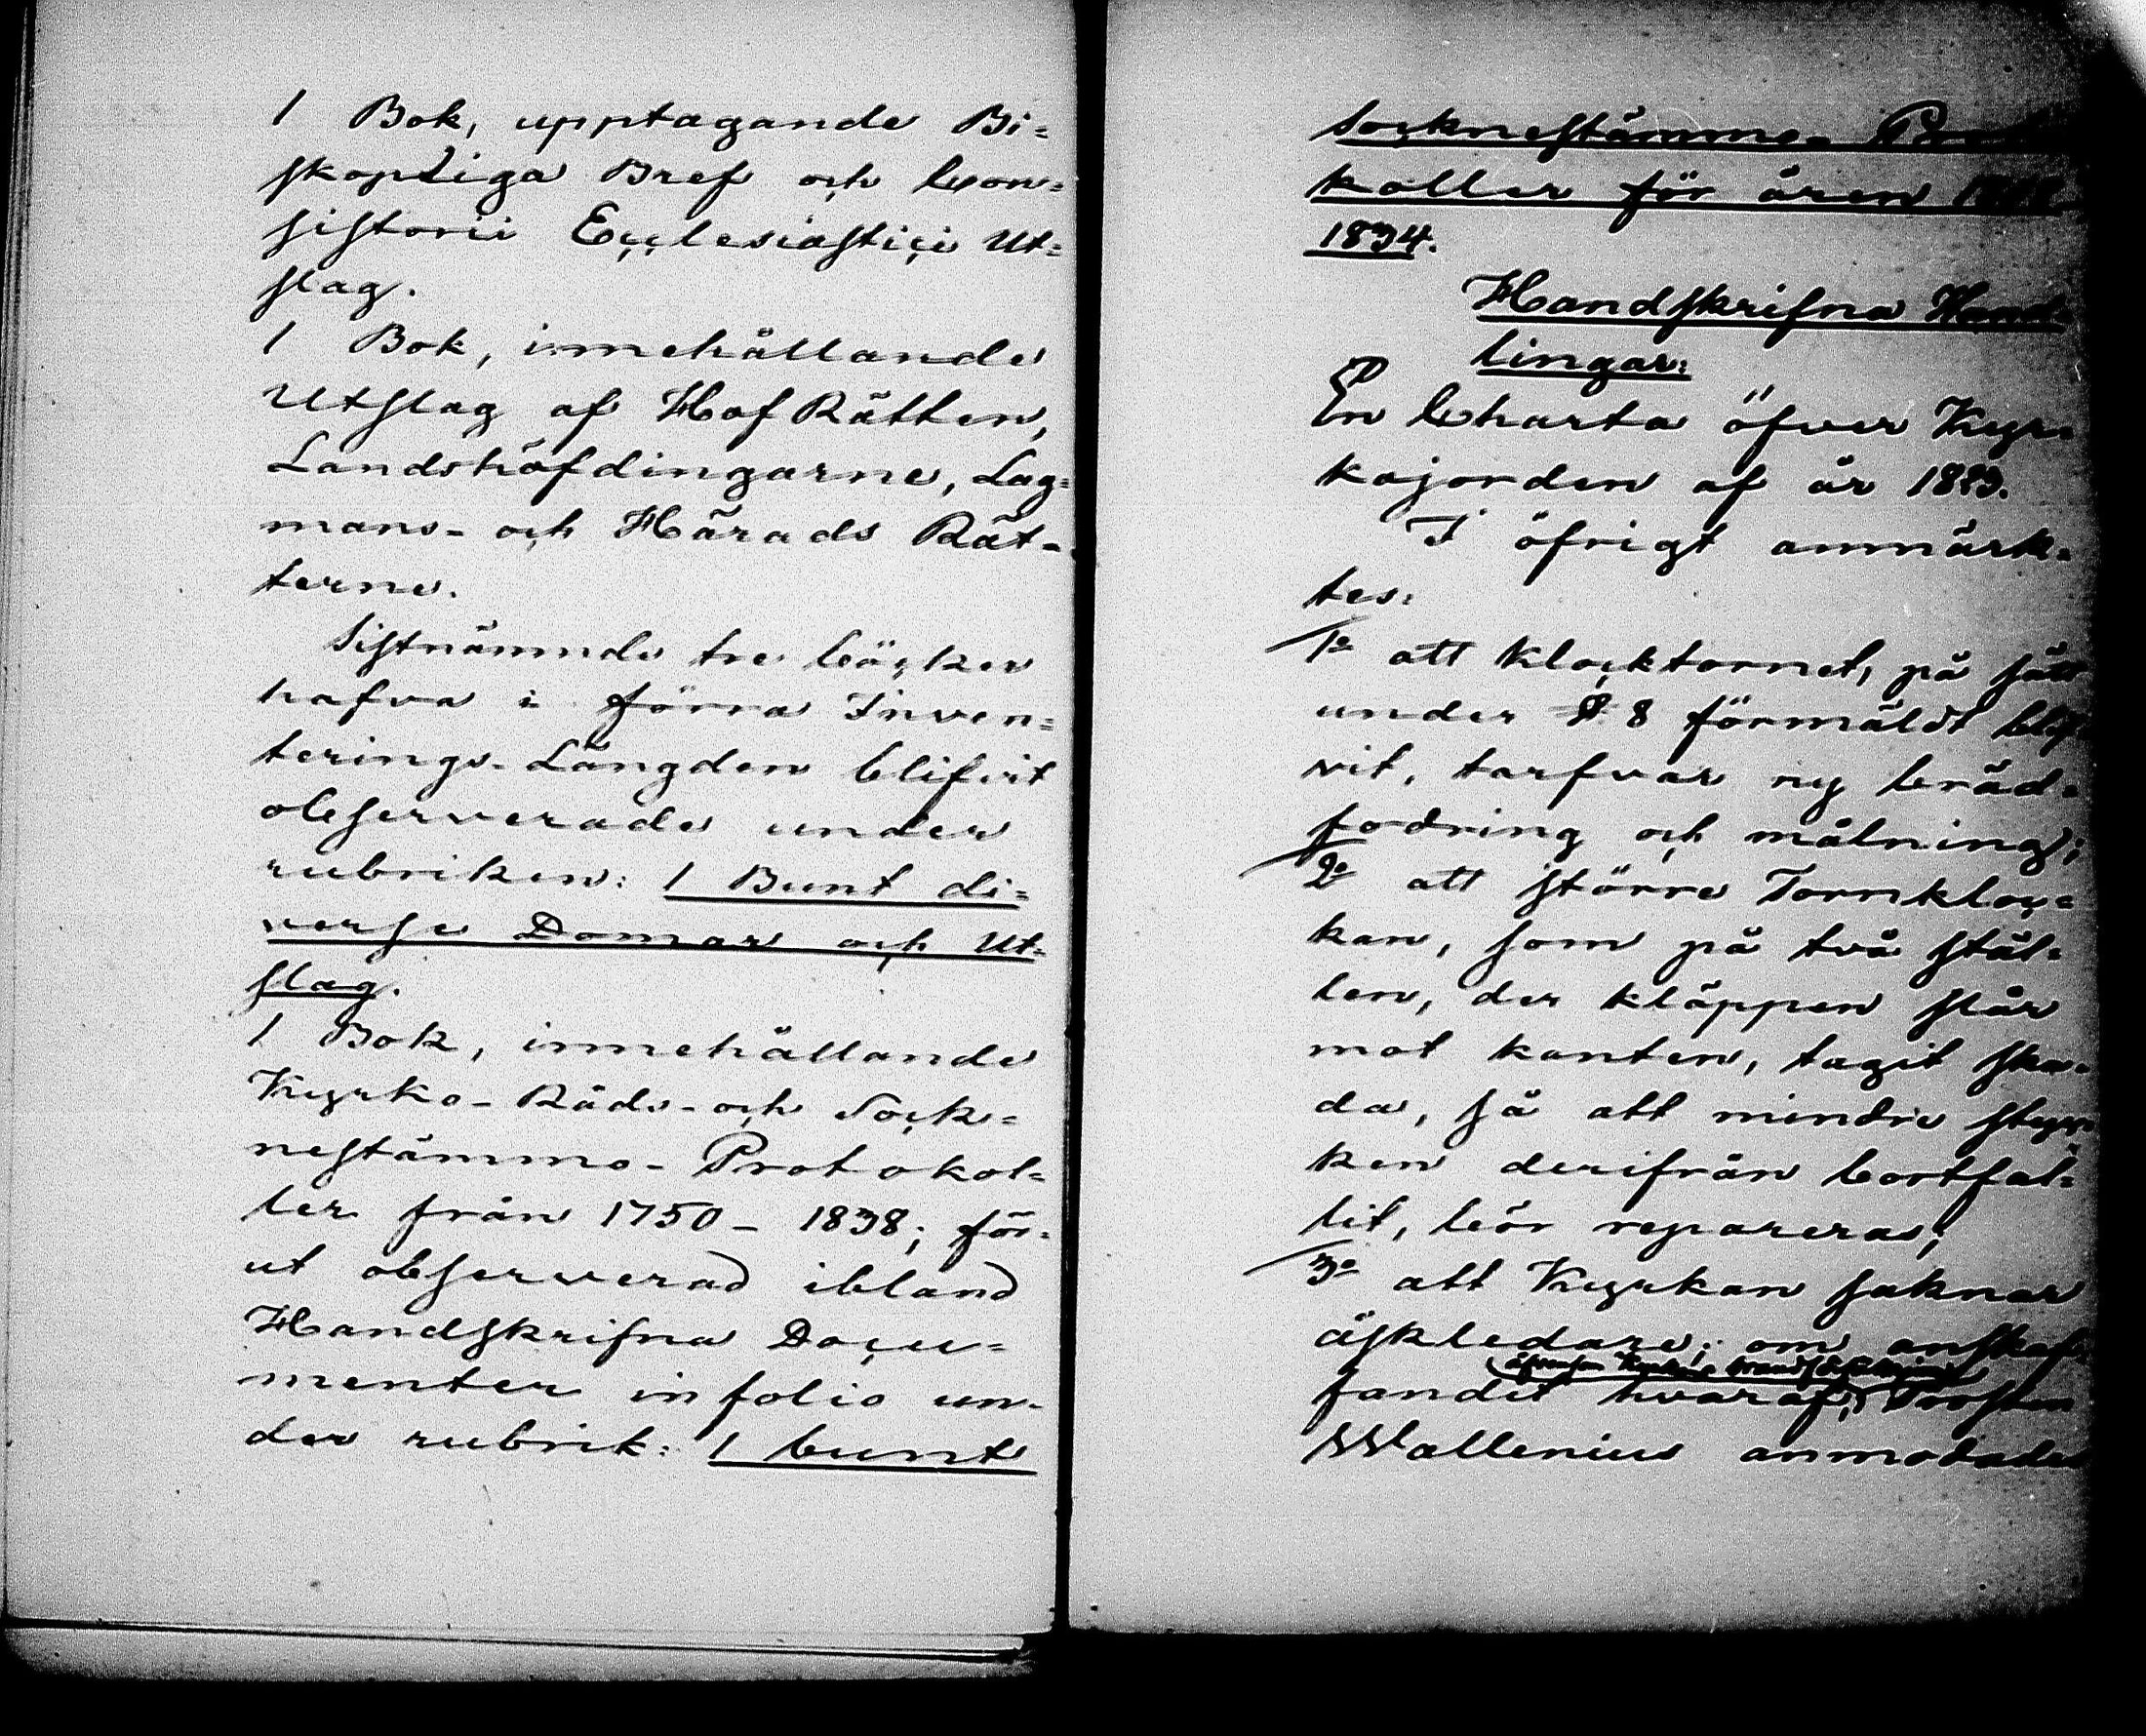 1 Bok, upptagande Bi=
skopliga Bref och Con=
sistorii Ecclesiastici Ut=
slag.
1 Bok, innehållande
Utslag af HofRätten,
Landshöfdingarne, Lag=
mans- och Härads Rät-
terne.
Sistnämnde tre böcker
hafva i förra Inven=
terings-Längden blifvit
observerade under
rubriken: 1 Bunt di=
verse Domar och Ut=
slag.
1 Bok, innehållande
Kyrko-Råds- och Sock=
nestämmo-Protokol=
ler från 1750 - 1838; för=
ut observerad ibland
Handskrifna Docu=
menter in folio un-
der rubrik: 1 bunt
Socknestämmo-
koller för åren
1834.
Handskrifna Hand=
lingar:
En Charta öfver Kyr=
kajorden af år
I öfrigt anmärk=
tes:
1o att klocktornet, på sätt
under § 8 förmäldt blif=
vit, tarfvar ny bräd=
fodring och målning;
2o att större Tornkloc=
kan, som på två stäl=
len, der kläppen slår
mot kanten, tagit ska=
da, så att mindre styc=
ken derifrån bortfal=
lit, bör repareras;
3o att Kyrkan saknar
åskledare; om anskaf=
fandet hvaraf, Prosten
Wallenius anmodades